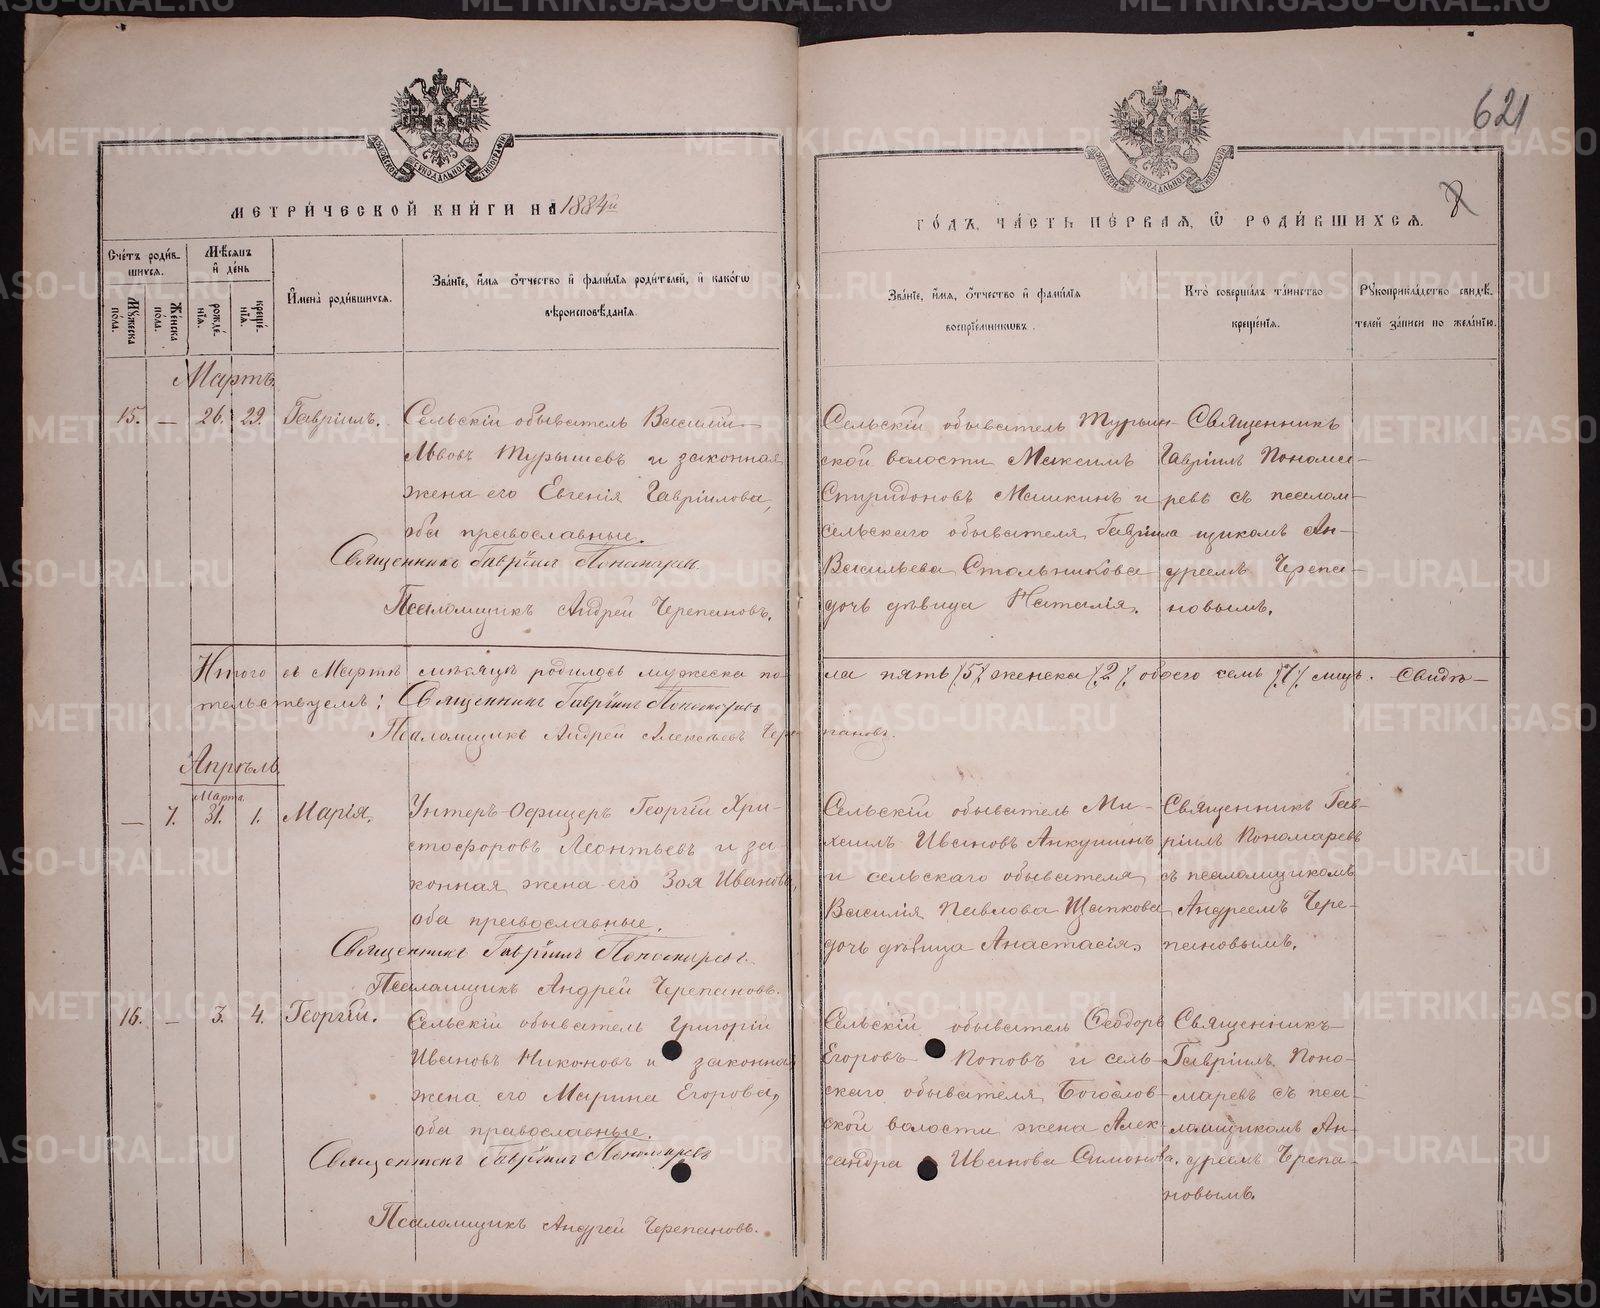 621
8
МЕТРИ́ЧЕСКОЙ КНИ́ГИ НА 1884й
ГО́ДЪ, ЧА́СТЬ ПЕ́РВАЯ, Ѡ РОДИ́ВШИХСЯ.
Сче́тъ роди́в-
шихся.
Мѣ́сяцъ
и де́нь
Мꙋ́жеска
по́ла.
Же́нска
по́ла.
рожде́-
нїя.
креще́-
нїя.
Имена̀ роди́вшихся.
Зва́нїе, и́мя о́тчество и фами́лїя роди́телей, и како́гѡ
вѣроисповѣ́данїя.
Зва́нїе, и́мя, о́тчество и фами́лїя
воспрїе́мникѡвъ.
Кто̀ соверша́лъ та́инство
креще́нїя.
Рꙋкоприкла́дство свидѣ́-
телей за́писи по жела́нїю.
Мартъ
15. — 26. 29. Гавріилъ.
Сельскій обыватель Василій
Львовъ Турышевъ и законная
жена его Евгенія Гавріилова,
оба православные.
Священникъ Гавріилъ Пономаревъ.
Псаломщикъ Андрей Черепановъ.
Сельскій обыватель Турьин-
ской волости Максимъ
Спиридоновъ Машкинъ и
сельскаго обывателя Гавріила
Васильева Стольникова
дочь дѣвица Наталія.
Священникъ
Гавріилъ Понома-
ревъ съ псалом-
щикомъ Ан-
дреемъ Черепа-
новымъ.
Итого въ Мартѣ мѣсяцѣ родилось мужеска по-
ла пять /5/, женска /2/, обоего семь /7/ лицъ. Свидѣ-
тельствуемъ: Священникъ Гавріилъ Пономаревъ
Псаломщикъ Андрей Алексѣевъ Чере-
пановъ.
Апрѣль.
Марта.
— 7. 31. 1. Марія.
Унтеръ-Офицеръ Георгій Хри-
стофоровъ Леонтьевъ и за-
конная жена его Зоя Иванова,
оба православные.
Священникъ Гавріилъ Пономаревъ.
Псаломщикъ Андрей Черепановъ.
Сельскій обыватель Ми-
хаилъ Ивановъ Анкушинъ
и сельскаго обывателя
Василія Павлова Щапкова
дочь дѣвица Анастасія.
Священникъ Гав-
ріилъ Пономаревъ
съ псаломщикомъ
Андреемъ Чере-
пановымъ.
16. — 3. 4. Георгій.
Сельскій обыватель Григорій
Ивановъ Никоновъ и законная
жена его Марина Егорова,
оба православные.
Священникъ Гавріилъ Пономаревъ
Псаломщикъ Андрей Черепановъ.
Сельскій обыватель Ѳеодоръ
Егоровъ Поповъ и сель-
скаго обывателя Богослов-
ской волости жена Алек-
сандра Иванова Симонова.
Священникъ
Гавріилъ Поно-
маревъ съ пса-
ломщикомъ Ан-
дреемъ Черепа-
новымъ.